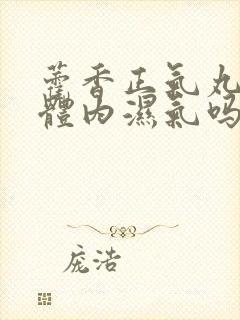 藿香正氣丸
體內濕氣嗎
龐浩